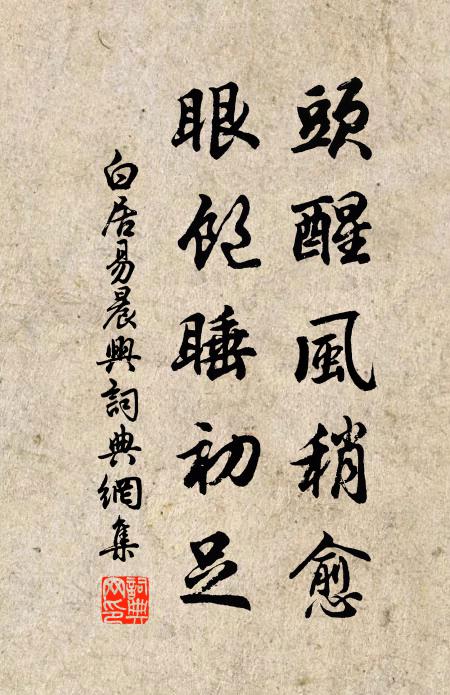 頭醒風稍愈
眼飽睡初足
白居易晨興詞典網集
詞典网印